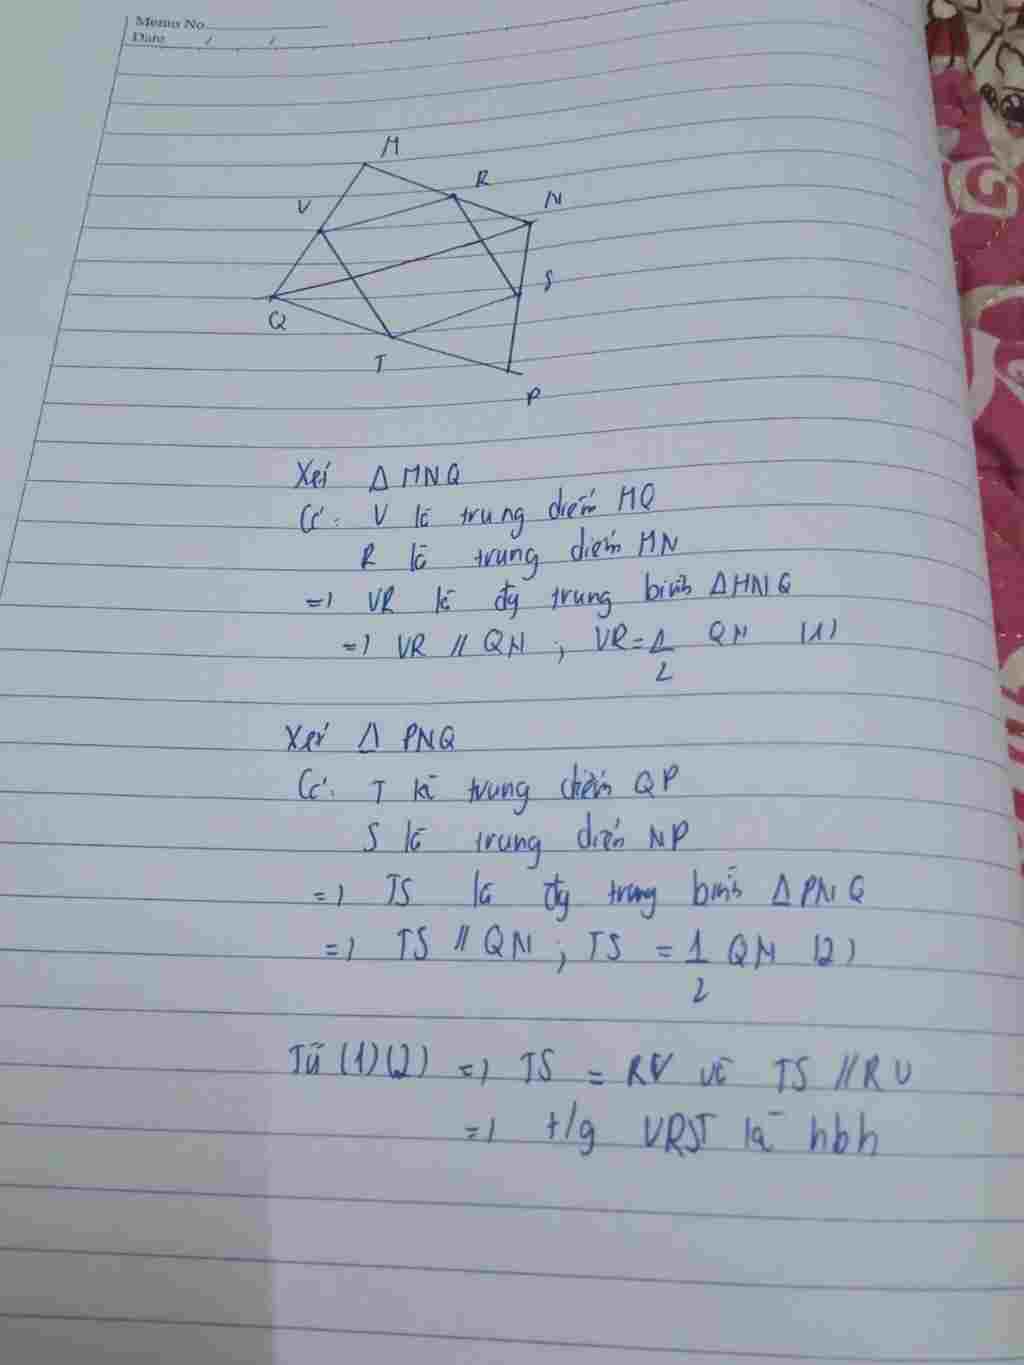 Memo No.
Date / /
M
R
N
V
S
Q
T
P
Xét Δ MNQ
Có: V là trung điểm MQ
R là trung điểm MN
=) VR là đg trung bình Δ MNQ
=) VR // QN ; VR = 1/2 QN (1)
Xét Δ PNQ
Có: T là trung điểm QP
S là trung điểm NP
=) TS là đg trung bình Δ PNQ
=) TS // QN ; TS = 1/2 QN (2)
Từ (1)(2) =) TS = RV và TS // RV
=) t/g VRST là hbh